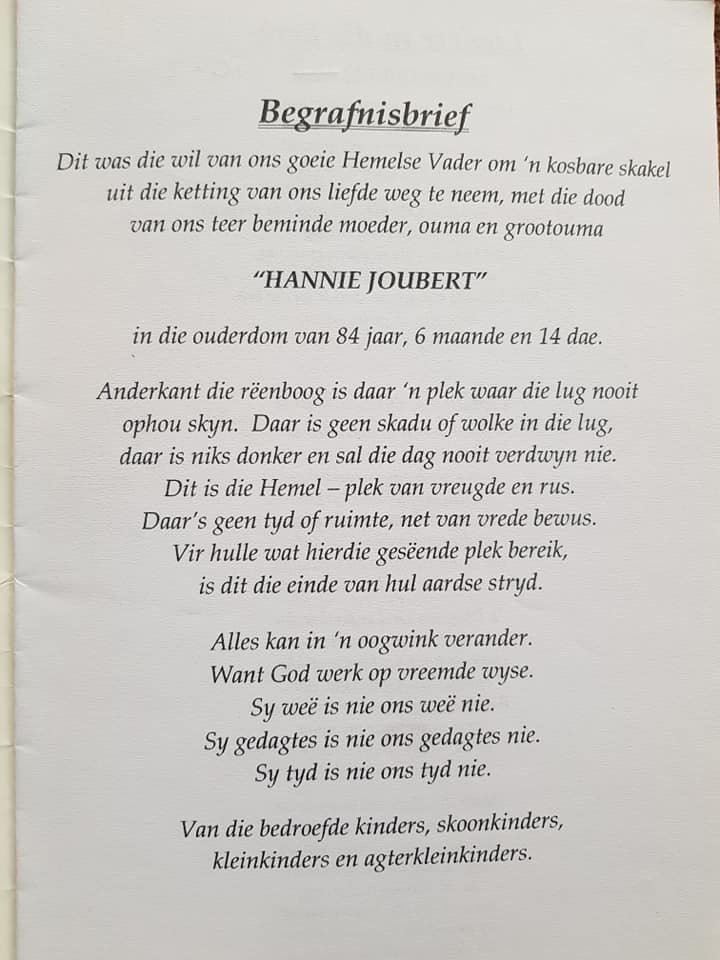 Begrafnisbrief
Dit was die wil van ons goeie Hemelse Vader om ‘n kosbare skakel
uit die ketting van ons liefde weg te neem, met die dood
van ons teer beminde moeder, ouma en grootouma
“HANNIE JOUBERT”
in die ouderdom van 84 jaar, 6 maande en 14 dae.
Anderkant die rëenboog is daar ‘n plek waar die lug nooit
ophou skyn. Daar is geen skadu of wolke in die lug,
daar is niks donker en sal die dag nooit verdwyn nie.
Dit is die Hemel – plek van vreugde en rus.
Daar’s geen tyd of ruimte, net van vrede bewus.
Vir hulle wat hierdie gesëende plek bereik,
is dit die einde van hul aardse stryd.
Alles kan in ‘n oogwink verander.
Want God werk op vreemde wyse.
Sy weë is nie ons weë nie.
Sy gedagtes is nie ons gedagtes nie.
Sy tyd is nie ons tyd nie.
Van die bedroefde kinders, skoonkinders,
kleinkinders en agterkleinkinders.